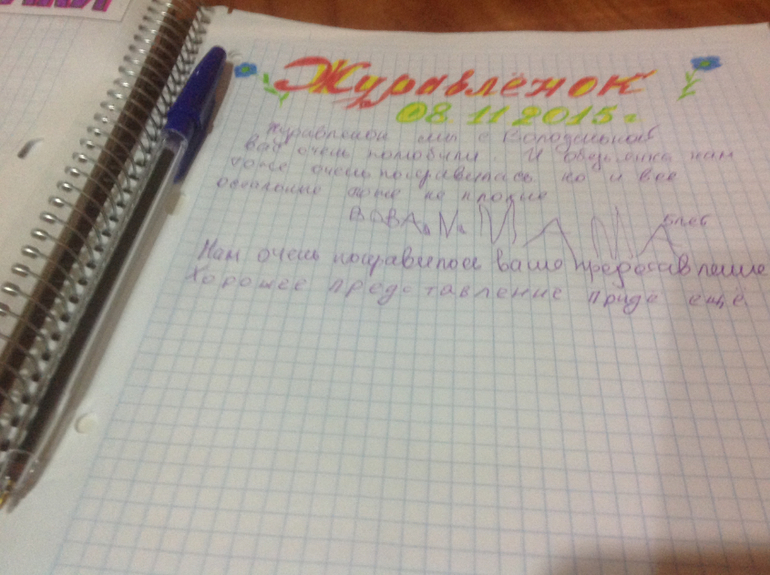 Журавлёнок
08.11.2015г.
Журавленок мы с Володенькой
вас очень полюбили. И обезьянка нам
тоже очень понравилась но и все
остальные тоже не плохие
ВОВА. М. МАМА
Нам очень понравилось ваше
Хорошее представление приде ещё